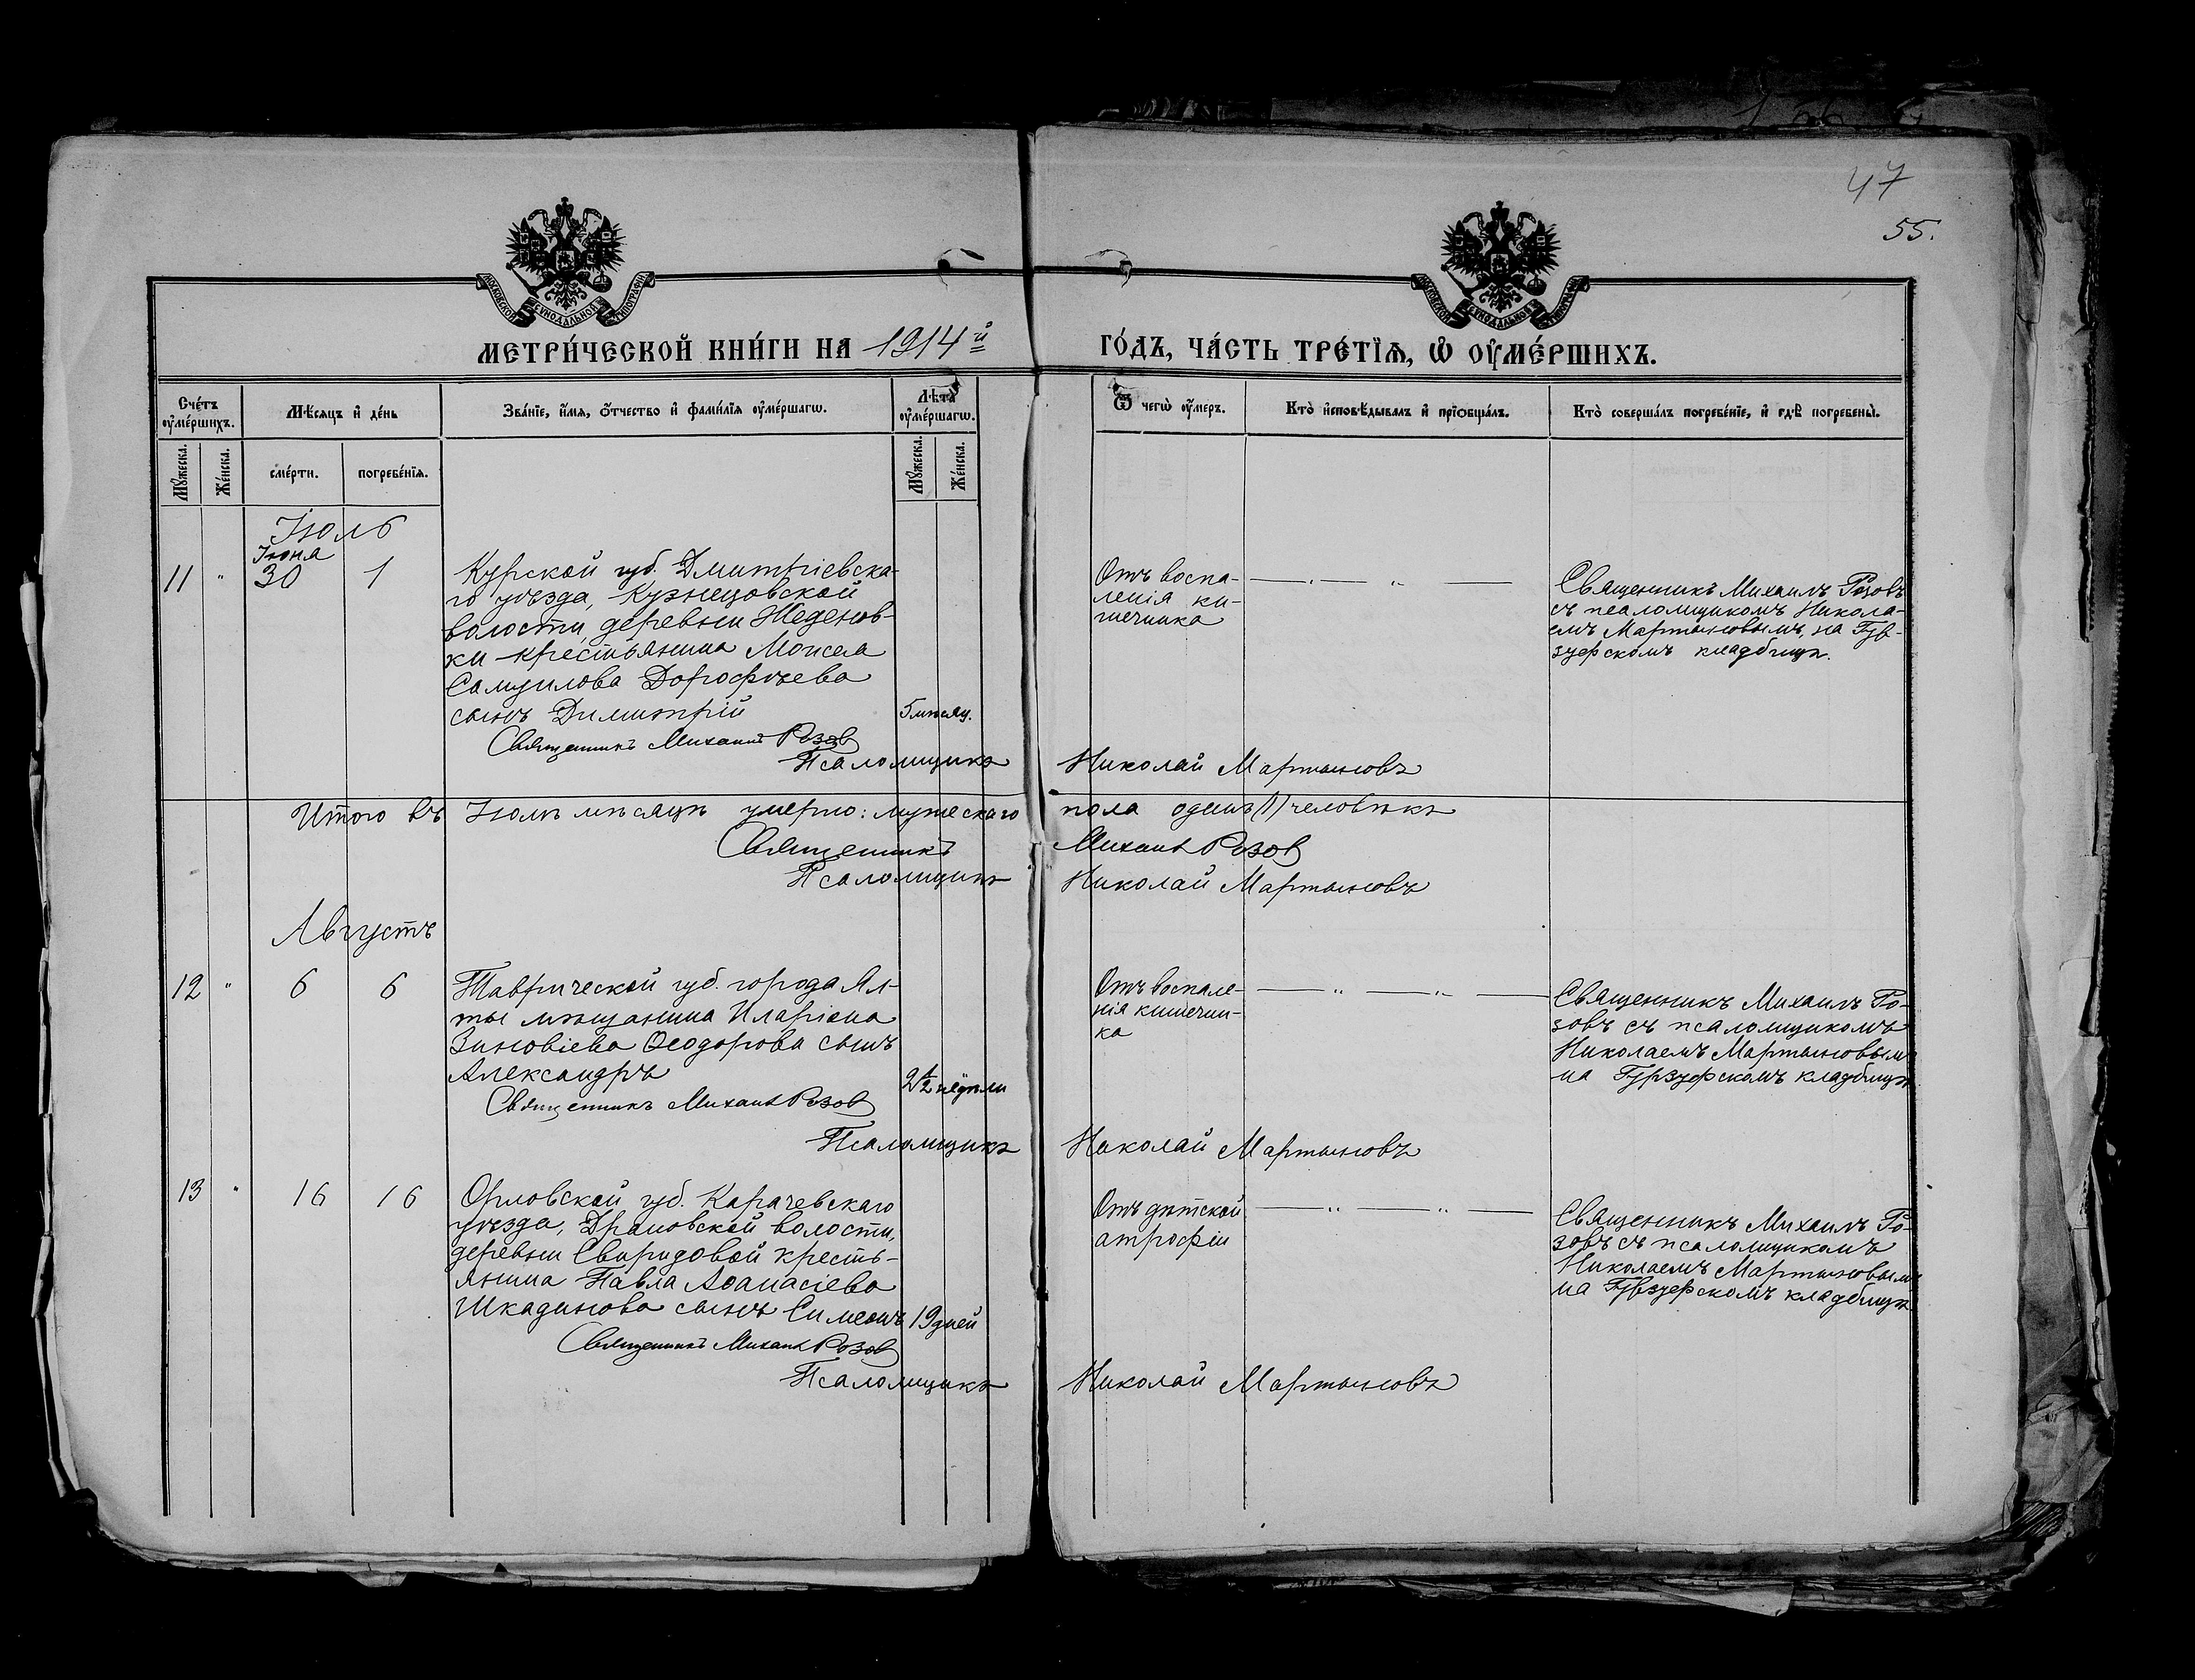 47
55.
МОСКОВСКОЙ СѴНОДАЛЬНОЙ ТИПОГРАФІИ
МОСКОВСКОЙ СѴНОДАЛЬНОЙ ТИПОГРАФІИ
МЕТРИ́ЧЕСКОЙ КНИ́ГИ НА 1914й
ГО́ДЪ, ЧА́СТЬ ТРЕ́ТІѦ, Ѡ҆ ОУ҆МЕ́РШИХЪ.
Сче́тъ оу҆ме́ршихъ.
Мѣ́сяцъ и҆ де́нь
Зва́нїе, и҆́мѧ, ѻ҆́тчество и҆ фами́лїѧ оу҆ме́ршагѡ.
Лѣ́та оу҆ме́ршагѡ.
Ѿ чегѡ̀ оу҆́меръ.
Кто̀ и҆сповѣ́дывалъ и҆ прїѡбща́лъ.
Кто̀ соверша́лъ погребе́нїе, и҆ гдѣ̀ погребены̀.
Мꙋ́жеска.
Же́нска.
сме́рти.
погребе́нїѧ.
Мꙋ́жеска.
Же́нска.
Іюль
Іюня
11 " 30 1
Курской губ. Дмитріевска-
го уѣзда, Кузнецовской
волости, деревни Жеденов-
ки крестьянина Моисея
Самуилова Дорофѣева
сынъ Димитрій
5 мѣсяц.
Отъ воспа-
ленія ки-
шечника
Священникъ Михаилъ Розовъ
съ псаломщикомъ Никола-
емъ Мартыновымъ, на Гур-
зуфскомъ кладбищѣ.
Священникъ Михаилъ Розов
Псаломщикъ Николай Мартыновъ
Итого въ Іюлѣ мѣсяцѣ умерло: мужескаго пола одинъ (1) человѣкъ
Священникъ Михаилъ Розов
Псаломщикъ Николай Мартыновъ
Августъ
12 " 6 6
Таврической губ. города Ял-
ты мѣщанина Иларіона
Зиновіева Ѳеодорова сынъ
Александръ
2 1/2 недѣли
Отъ воспале-
нія кишечни-
ка
Священникъ Михаилъ Ро-
зовъ съ псаломщикомъ
Николаемъ Мартыновымъ
на Гурзуфскомъ кладбищѣ
Священникъ Михаилъ Розов
Псаломщикъ Николай Мартыновъ
13 " 16 16
Орловской губ. Карачевскаго
уѣзда, Драновской волости,
деревни Свиридовой кресть-
янина Павла Аѳанасіева
Шкадинова сынъ Симеонъ
19 дней
Отъ дѣтской
атрофіи
Священникъ Михаилъ Ро-
зовъ съ псаломщикомъ
Николаемъ Мартыновымъ
на Гурзуфскомъ кладбищѣ
Священникъ Михаилъ Розов
Псаломщикъ Николай Мартыновъ